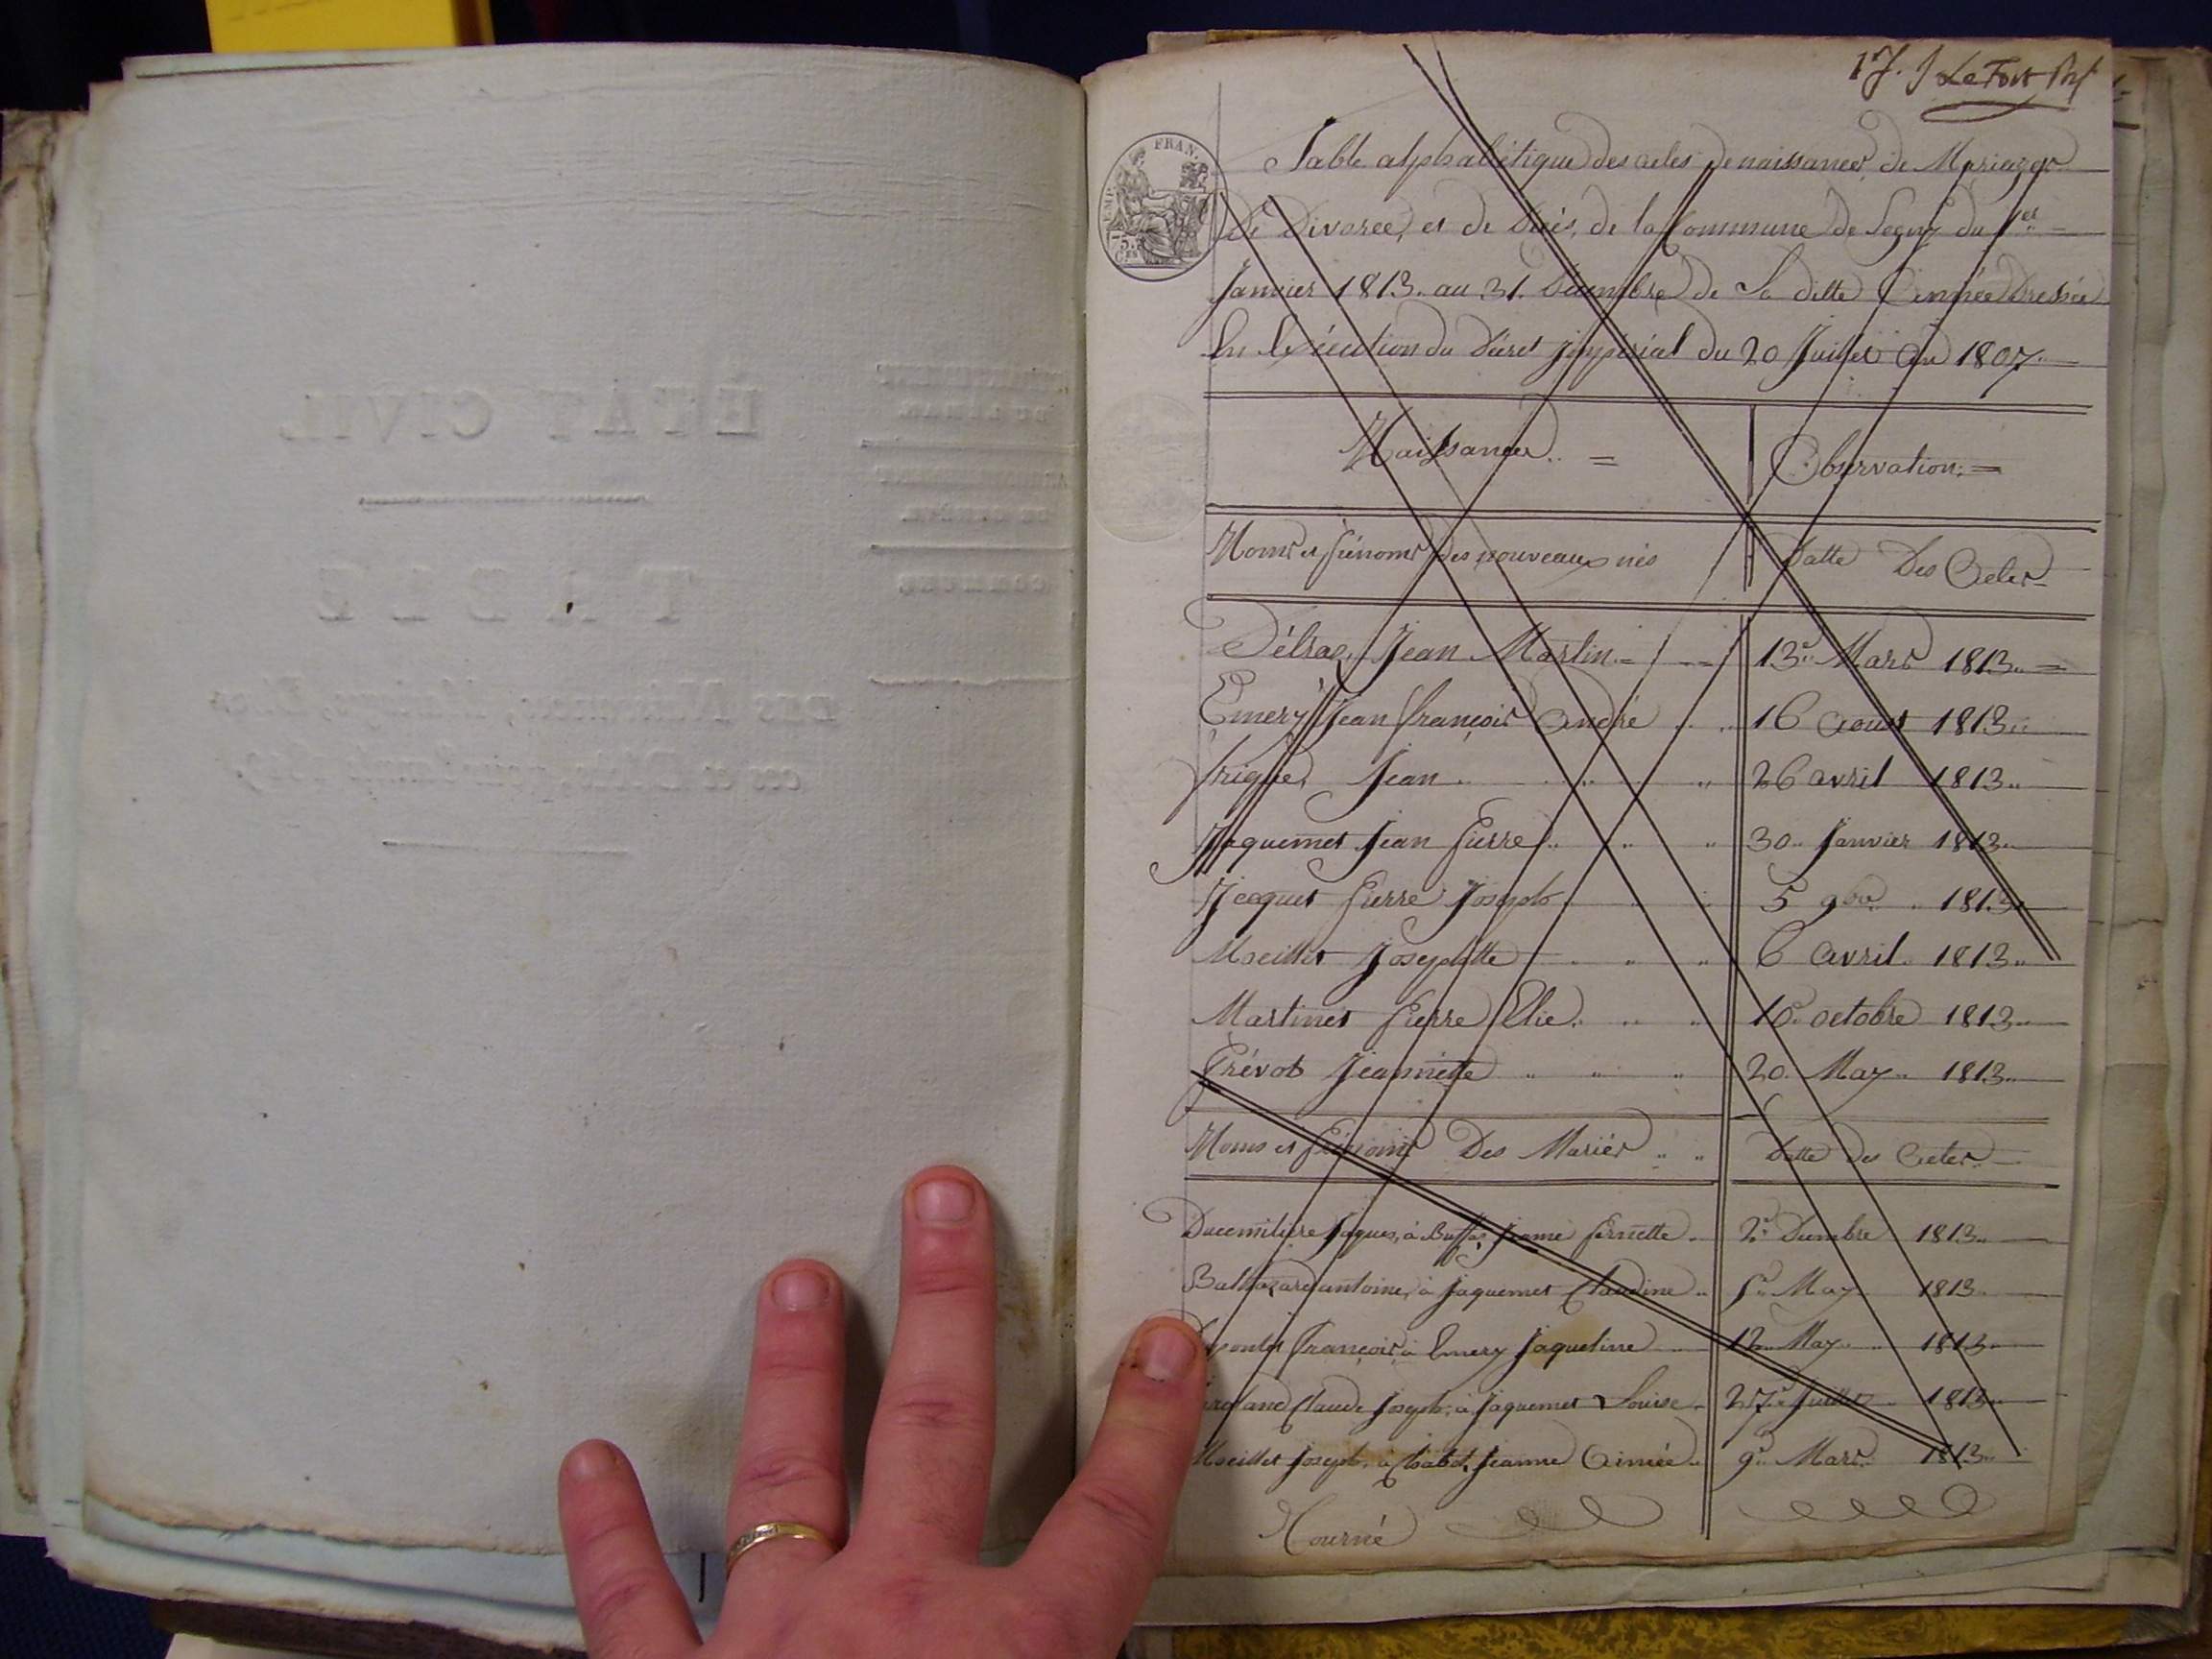 ÉTAT CIVIL.
DÉPARTEMENT
DU LÉMAN.
COMMUNE
TABLE
DES Naissances, Mariages, Divor-
ces et Décès, pendant l'année 1813.
17. J Le Fort
EMP. FRAN.
75.
Cen
Table alphabétique des actes de naissances de Mariages
De Divorce, et de Décès, de la Commune de Segny du 1er
Janvier 1813. au 31. Décembre de La ditte Année Dressée
En Exécution du Décret Impérial du 20 Juillet An 1807.
Naissances
Observation
Noms et Prénoms des nouveaux nés
Datte Des Actes
Jean Martin 13e Mars 1813
Emery Jean François André 16 Aoust 1813
Jean 26 avril 1813
Jaquemet Jean Pierre 30 Janvier 1813
Jacquet Pierre Joseph 5 9bre 1813
Josephtte 6 Avril 1813
Martinet Pierre Elie 10e octobre 1813
Prévot Jeannette 20 May 1813
Noms et Prénoms Des Mariés
Datte des Actes
Jaques, à Pernette 2e Decembre 1813
Balthazard antoine, à Jaquemet Claudine May 1813
François à Emery Jaqueline 12 May 1813
Claude Joseph, à Jaquemet Louise 27e Juillet 1813
Joseph, à Chabot, Jeanne Aimée 9e Mars 1813
Tourné